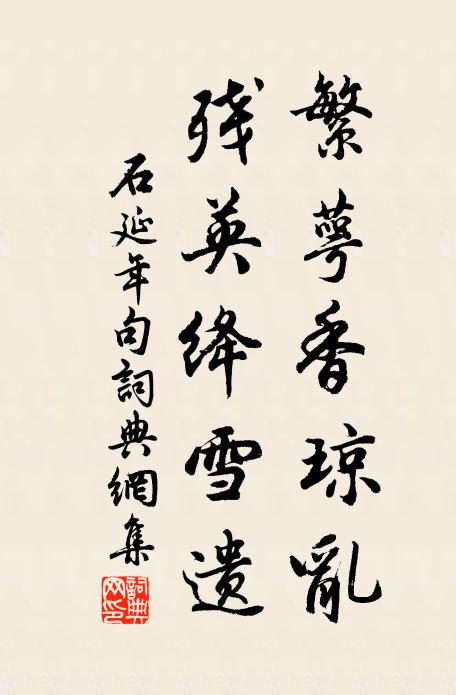 繁萼香琼亂
残英绛雪遗
石延年句詞典網集
詞典网印